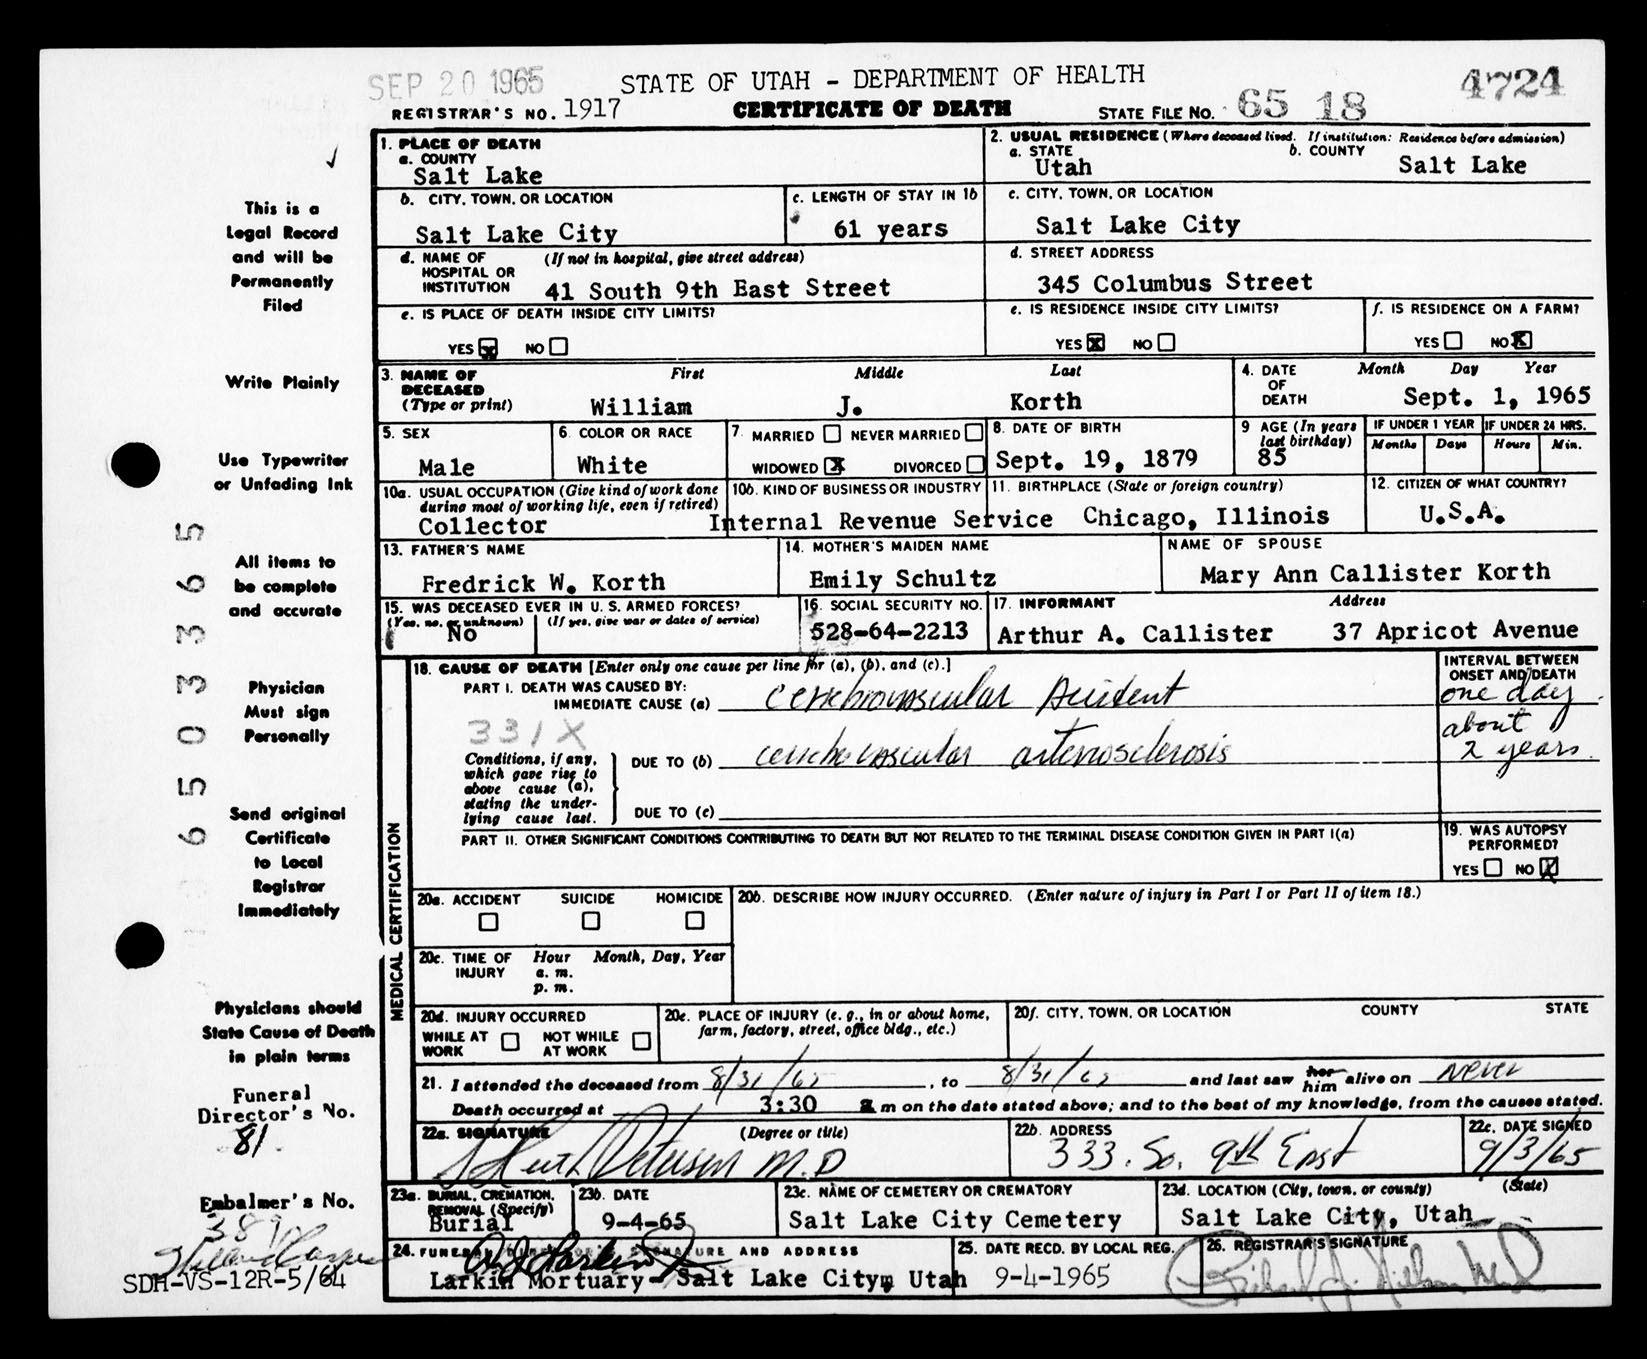 SEP 20 1965
STATE OF UTAH - DEPARTMENT OF HEALTH
4724
REGISTRAR'S NO. 1917
CERTIFICATE OF DEATH
STATE FILE NO. 65 18
This is a
Legal Record
and will be
Permanently
Filed
Write Plainly
Use Typewriter
or Unfading Ink
All items to
be complete
and accurate
Physician
Must sign
Personally
Send original
Certificate
to Local
Registrar
Immediately
Physicians should
State Cause of Death
in plain terms
Funeral
Director's No.
81
Embalmer's No.
SDH-VS-12R-5/64
65033655
1. PLACE OF DEATH
a. COUNTY
Salt Lake
2. USUAL RESIDENCE (Where deceased lived. If institution: Residence before admission)
a. STATE
Utah
b. COUNTY
Salt Lake
b. CITY, TOWN, OR LOCATION
Salt Lake City
c. LENGTH OF STAY IN 1b
61 years
c. CITY, TOWN, OR LOCATION
Salt Lake City
d. NAME OF HOSPITAL OR INSTITUTION
(If not in hospital, give street address)
41 South 9th East Street
d. STREET ADDRESS
345 Columbus Street
e. IS PLACE OF DEATH INSIDE CITY LIMITS?
YES X NO
e. IS RESIDENCE INSIDE CITY LIMITS?
YES X NO
f. IS RESIDENCE ON A FARM?
YES NO X
3. NAME OF DECEASED
(Type or print)
First Middle Last
William J. Korth
4. DATE OF DEATH
Month Day Year
Sept. 1, 1965
5. SEX
Male
6. COLOR OR RACE
White
7. MARRIED NEVER MARRIED
WIDOWED X DIVORCED
8. DATE OF BIRTH
Sept. 19, 1879
9 AGE (In years last birthday)
85
IF UNDER 1 YEAR
Months Days
IF UNDER 24 HRS.
Hours Min.
10a. USUAL OCCUPATION (Give kind of work done during most of working life, even if retired)
Collector
10b. KIND OF BUSINESS OR INDUSTRY
Internal Revenue Service
11. BIRTHPLACE (State or foreign country)
Chicago, Illinois
12. CITIZEN OF WHAT COUNTRY?
U.S.A.
13. FATHER'S NAME
Fredrick W. Korth
14. MOTHER'S MAIDEN NAME
Emily Schultz
NAME OF SPOUSE
Mary Ann Callister Korth
15. WAS DECEASED EVER IN U. S. ARMED FORCES?
(Yes, no, or unknown) (If yes, give war or dates of service)
No
16. SOCIAL SECURITY NO.
528-64-2213
17. INFORMANT Address
Arthur A. Callister 37 Apricot Avenue
MEDICAL CERTIFICATION
18. CAUSE OF DEATH [Enter only one cause per line for (a), (b), and (c).]
INTERVAL BETWEEN ONSET AND DEATH
PART I. DEATH WAS CAUSED BY:
IMMEDIATE CAUSE (a) cerebrovascular Accident
one day
331X
Conditions, if any, which gave rise to above cause (a), stating the underlying cause last.
DUE TO (b) cerebrovascular arteriosclerosis
about 2 years
DUE TO (c)
PART II. OTHER SIGNIFICANT CONDITIONS CONTRIBUTING TO DEATH BUT NOT RELATED TO THE TERMINAL DISEASE CONDITION GIVEN IN PART I(a)
19. WAS AUTOPSY PERFORMED?
YES NO X
20a. ACCIDENT SUICIDE HOMICIDE
20b. DESCRIBE HOW INJURY OCCURRED. (Enter nature of injury in Part I or Part II of item 18.)
20c. TIME OF INJURY
Hour Month, Day, Year
a. m.
p. m.
20d. INJURY OCCURRED
WHILE AT WORK NOT WHILE AT WORK
20e. PLACE OF INJURY (e. g., in or about home, farm, factory, street, office bldg., etc.)
20f. CITY, TOWN, OR LOCATION COUNTY STATE
21. I attended the deceased from 8/31/65, to 8/31/65 and last saw her him alive on never
Death occurred at 3:30 a m on the date stated above; and to the best of my knowledge, from the causes stated.
22a. SIGNATURE (Degree or title)
Petersen M.D
22b. ADDRESS
333. So. 9th East
22c. DATE SIGNED
9/3/65
23a. BURIAL, CREMATION, REMOVAL (Specify)
Burial
23b. DATE
9-4-65
23c. NAME OF CEMETERY OR CREMATORY
Salt Lake City Cemetery
23d. LOCATION (City, town, or county) (State)
Salt Lake City, Utah
24. FUNERAL DIRECTOR'S SIGNATURE AND ADDRESS
Larkin Mortuary- Salt Lake Citym Utah
25. DATE RECD. BY LOCAL REG.
9-4-1965
26. REGISTRAR'S SIGNATURE